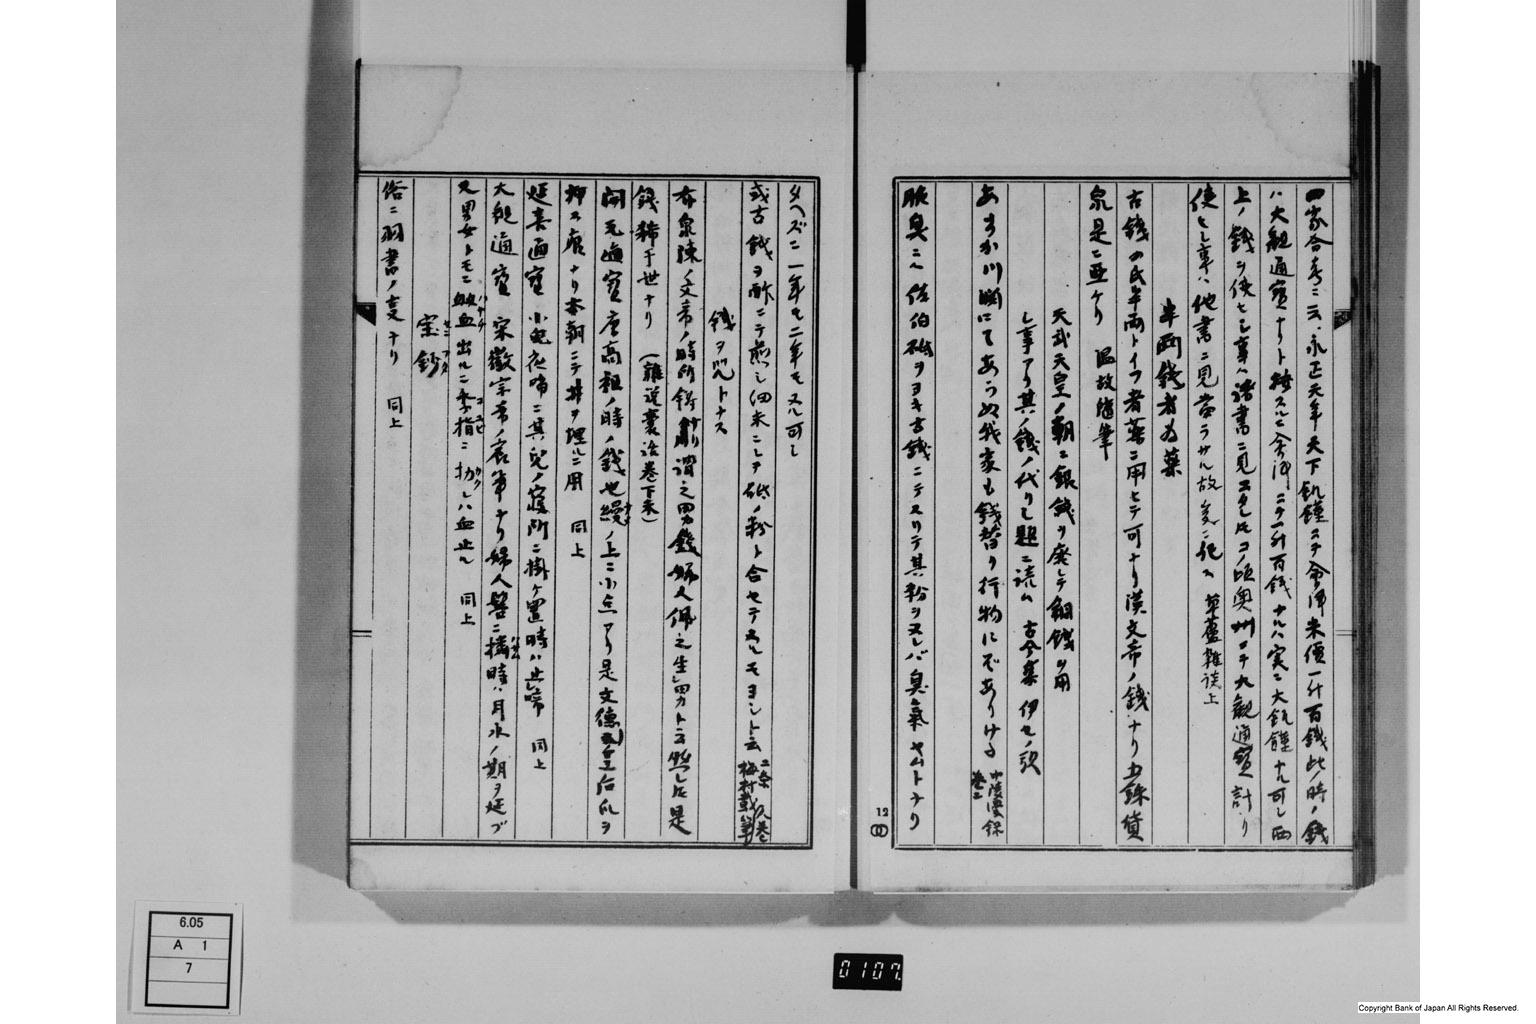 四家合考ニ云、永正元年天下飢饉ニテ会津米價一升百銭此ノ時ノ銭
ハ大観通寳ナリト按スルニ会津ニテ一升百銭ナルハ実ニ大飢饉ナル可シ西
上ノ銭ヲ使ヒシ事ハ諸書ニ見エタレ𪜈コノ頃奥州ニテ大観通寳計リ
使ヒシ事ハ他書ニ見當ラサル故爰ニ記ス 草蘆雜談上
半両銭者為薬
古銭の民半両トイフ者薬ニ用ヒテ可ナリ漢文帝ノ銭ナリ五銖貨
泉是ニ亜ケリ 温故随筆
天武天皇ノ朝ニ銀銭ヲ廃シテ銅銭ヲ用
シ事アリ其ノ銭ノ代リシ題ニ読ム 古今集 伊セノ歌
あすか川渕にてあらぬ我家も銭替り行物にぞありける
巻二
腋臭ニハ佐伯砥ヲヨキ古銭ニテスリテ其粉ヲヌレバ臭氣ヤムトナリ
12
タヘズニ一年モ二年モヌル可シ
或古銭ヲ酢ニテ煎シ細末ニシテ砥ノ粉ト合セテヌルモヨシト云 梅村載筆
銭ヲ トナス
布泉陳ノ文帝ノ時所鋳 謂之男銭婦人佩之生男力ト云然レ𪜈是
銭稀于世ナリ (雜説嚢話巻下末)
開元通寳唐高祖ノ時ノ銭也縵ノ上ニ小点アリ是文徳皇后爪ヲ
押ス痕ナリ本朝ニテ井ヲ埋ルニ用 同上
延喜通寳 小兒夜啼ニ其兒ノ寝所ニ掛ケ置時ハ止啼 同上
大観通寳 宋徽宗帝ノ 婦人髻ニ 時ハ月水ノ期ヲ延ブ
又男女トモニ衂血出ルニ季指ニ ハ血止ル 同上
宝鈔
俗ニ羽書ノ叓ナリ 同上
6.05
A 1
7
0107
Copyright Bank of Japan All Rights Reserved.